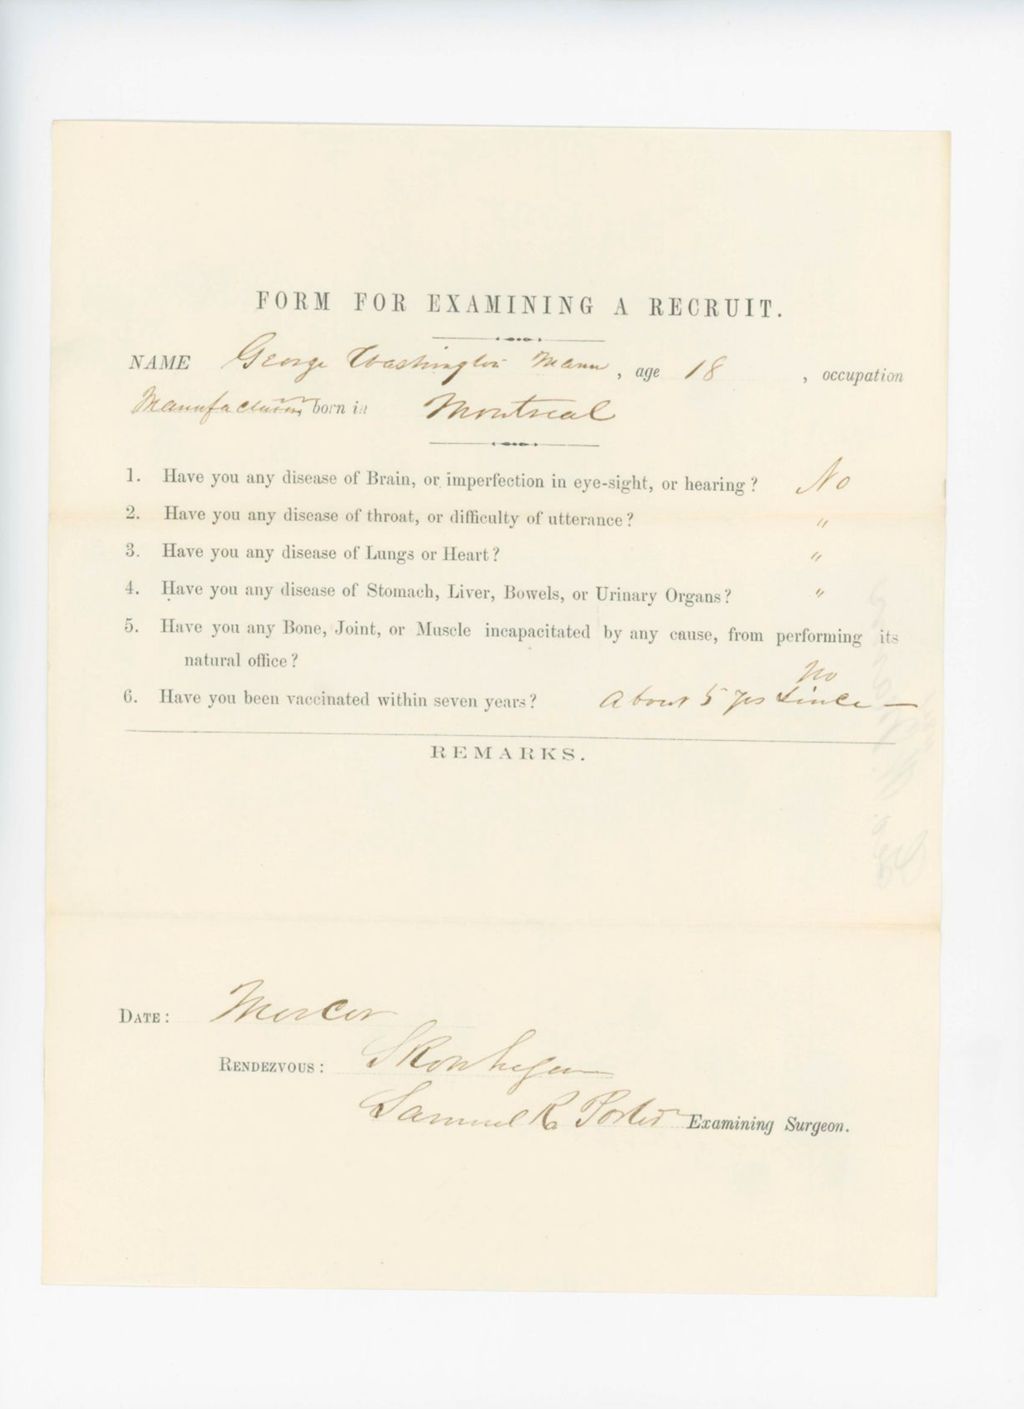 FORM FOR EXAMINING A RECRUIT.
NAME George Washington Mann, age 18, occupation
born in Montreal
1. Have you any disease of Brain, or imperfection in eye-sight, or hearing? No
2. Have you any disease of throat, or difficulty of utterance? "
3. Have you any disease of Lungs or Heart? "
4. Have you any disease of Stomach, Liver, Bowels, or Urinary Organs? "
5. Have you any Bone, Joint, or Muscle incapacitated by any cause, from performing its
natural office? No
6. Have you been vaccinated within seven years? About 5 yrs since —
REMARKS.
DATE: Mercer
RENDEZVOUS: Skowhegan
Samuel R Porter Examining Surgeon.